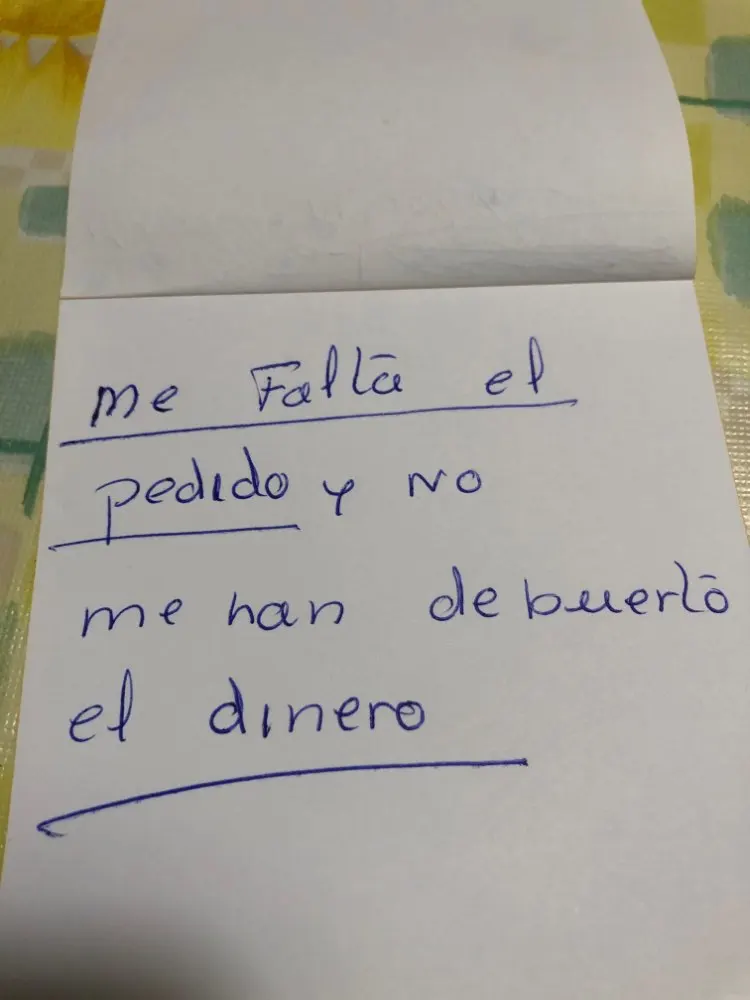 me Falta el
pedido y No
me han debuerto
el dinero